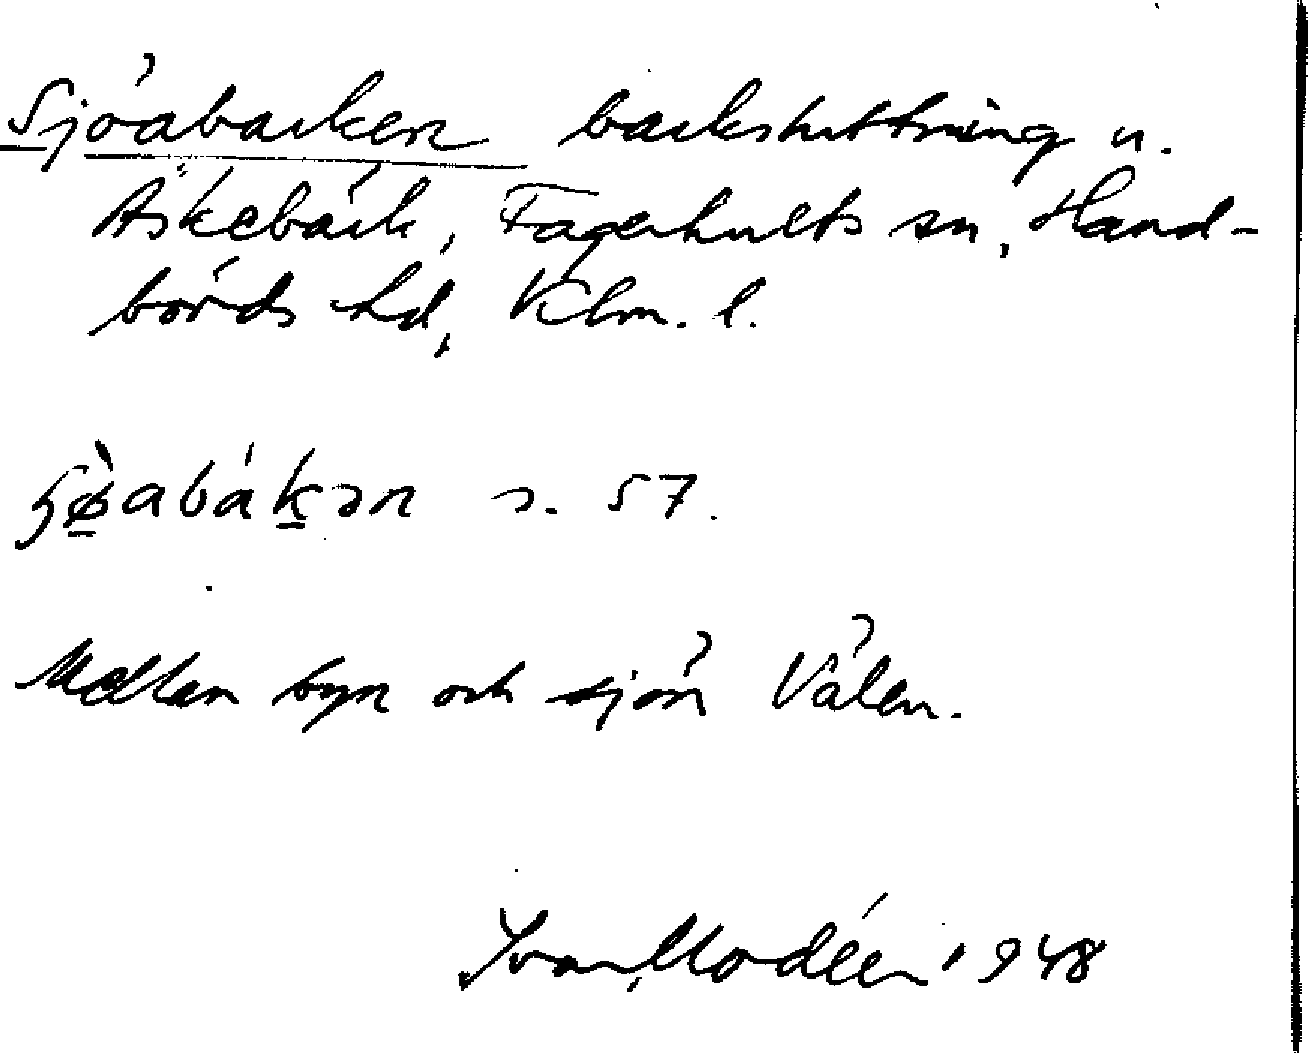 Sjöabacken backsluttning v.
Äskebäck, Fagerhults sn, Hand-
börds hd, Klm. l.
s. 57.
Mellan byn och sjön Välen.
Ivar Modéer 1948